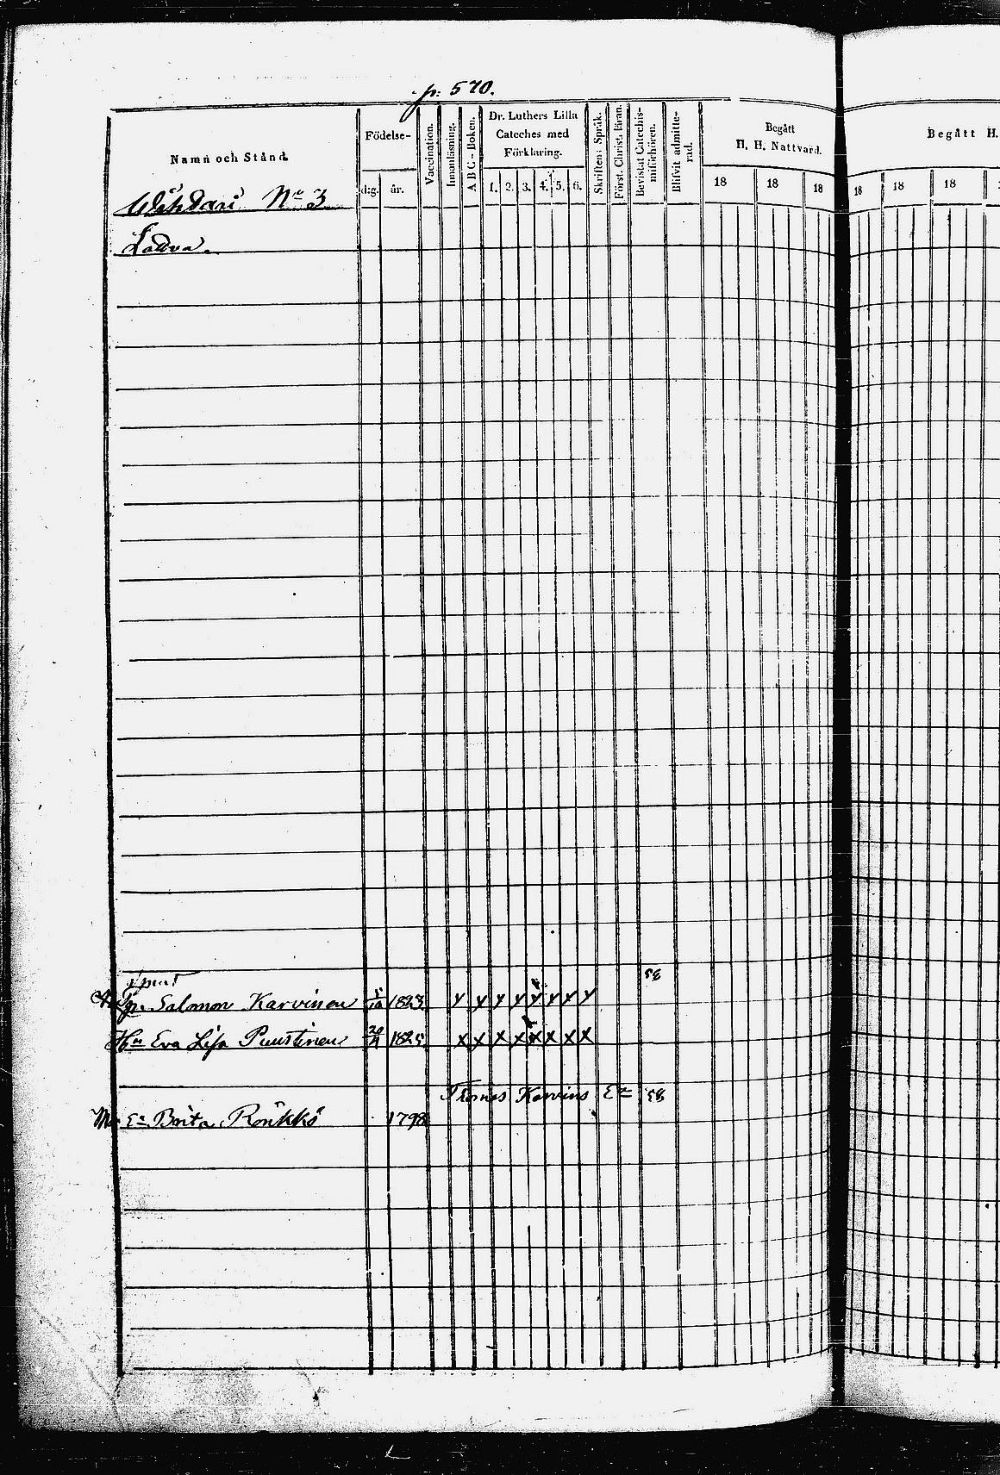 p: 570.
Namn och Stånd.
Födelse-
dag.
år.
Vaccination.
Innanläsning.
ABC-Boken.
Dr. Luthers Lilla
Cateches med
Förklaring.
1. 2. 3. 4. 5. 6.
Skriftens Språk.
Först. Christ. läran.
Bevistat Catechis-
miförhören.
Blifvit admitte-
rad.
Begått
H. H. Nattvard.
18 18 18
Begått H.
18 18 18
N:o 3
Ladva.
58
Salomon Karvinen 1823
x x x x x x x x
H:u Eva Lisa Puustinen 1825
x x x x x x x x
Thomas Karvins E:a 58
E:a Brita Rönkkö 1798